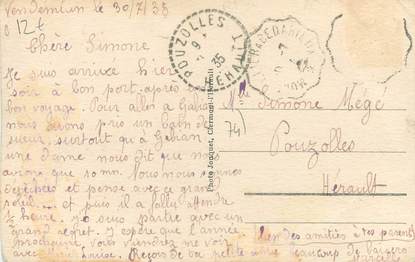 Vendémian le 30/7/35
12 t
Chère Simone
Je suis arrivée hier
soir à bon port après
bon voyage. Pour aller à Gabian
nous avons pris un bain de
sueur, surtout qu'à Gabian
une dame nous dit que nous
avions que 10 mn. Nous nous sommes
dépêchées et pense avec ce grand
soleil... et puis il a fallu attendre
½ heure. Je suis partie avec un
grand regret. J'espère que l'année
prochaine, vous viendrez me voir
Reçois de ta petite amie beaucoup de baisers
Bien des amitiés à tes parents
POUZOLLES
35
HERAULT
Photo Jacquet, Clermont-l'Hérault
Mlle Simone Mégé
74
Pouzolles
Hérault